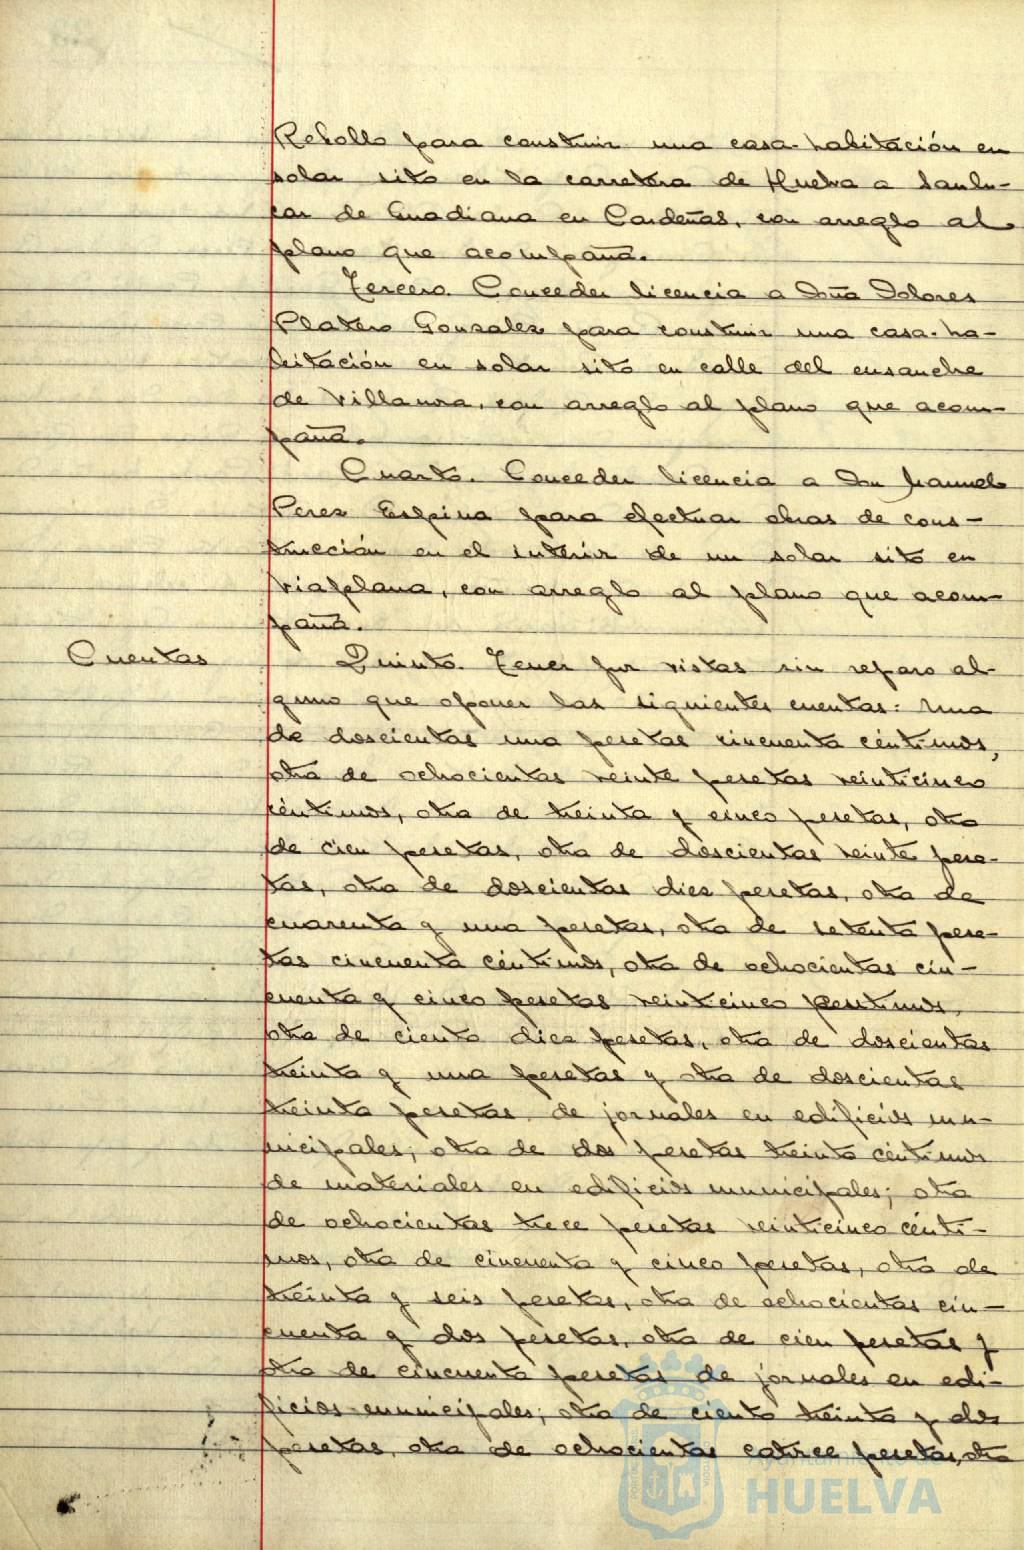 Rebollo para construir una casa-habitación en
solar sito en la carretera de Huelva a Sanlu-
car de Guadiana en Cardeñas, con arreglo al
plano que acompaña.
Tercero. Conceder licencia a Doña Dolores
Platero Gonzalez para construir una casa-ha-
bitación en solar sito en calle del ensanche
de Villamra, con arreglo al plano que acom-
paña.
Cuarto. Conceder licencia a Don Manuel
Perez Espina para efectuar obras de cons-
trucción en el interior de un solar sito en
Viaplana, con arreglo al plano que acom-
paña.
Cuentas
Quinto. Tener por vistas sin reparo al-
guno que oponer las siguientes cuentas: una
de doscientas una pesetas cincuenta céntimos,
otra de ochocientas veinte pesetas veinticinco
céntimos, otra de treinta y cinco pesetas, otra
de cien pesetas, otra de doscientas veinte pese-
tas, otra de doscientas diez pesetas, otra de
cuarenta y una pesetas, otra de setenta pese-
tas cincuenta céntimos, otra de ochocientas cin-
cuenta y cinco pesetas veinticinco
otra de ciento diez pesetas, otra de doscientas
treinta y una pesetas y otra de doscientas
treinta pesetas de jornales en edificios mu-
nicipales; otra de dos pesetas treinta céntimos
de materiales en edificios municipales; otra
de ochocientas trece pesetas veinticinco cénti-
mos, otra de cincuenta y cinco pesetas, otra de
treinta y seis pesetas, otra de ochocientas cin-
cuenta y dos pesetas, otra de cien pesetas y
otra de cincuenta pesetas de jornales en edi-
ficios municipales; otra de ciento treinta y dos
pesetas, otra de ochocientas catorce pesetas, otra
HUELVA